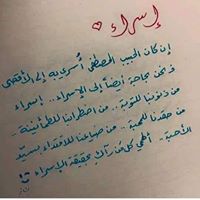 إسراء
إن كان الحبيب المصطفى أُسري به إلى الأقصى
فنحن بحاجة أيضاً إلى الإسراء .. إسراء
من ذنوبنا للتوبة .. من اضطرابنا للطمأنينة ..
من حقدنا للمحبة .. من ضياعنا للاقتداء بسيّد
الأحبة .. أظن كل من رآك حقيقة الإسراء